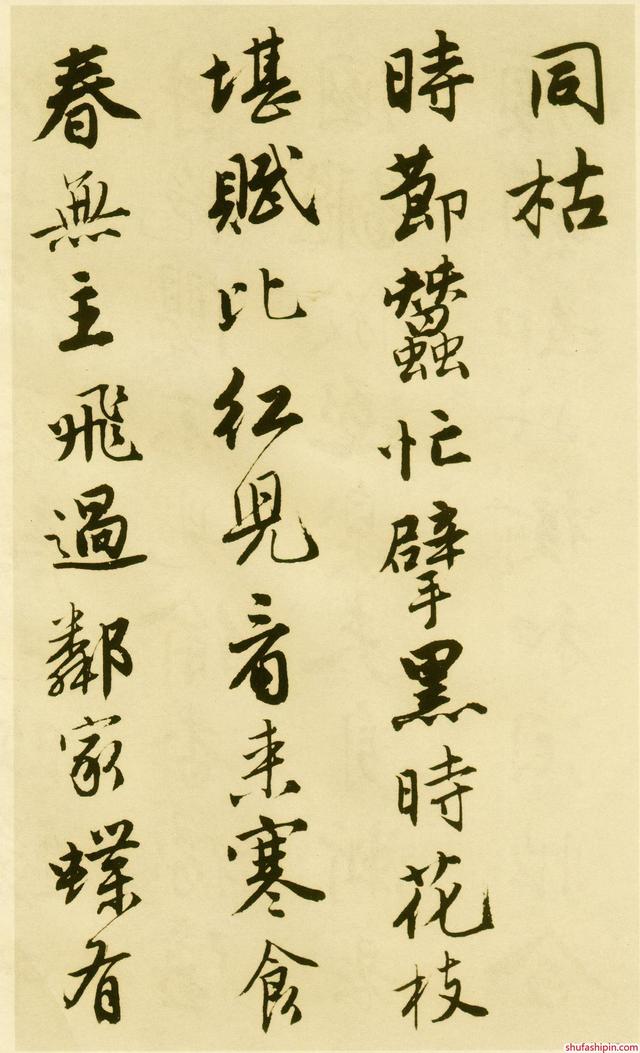 同枯
時節蠶忙擘黑時花枝
堪賦比紅兒看来寒食
春無主飛過鄰家蝶有
shufashipin.com